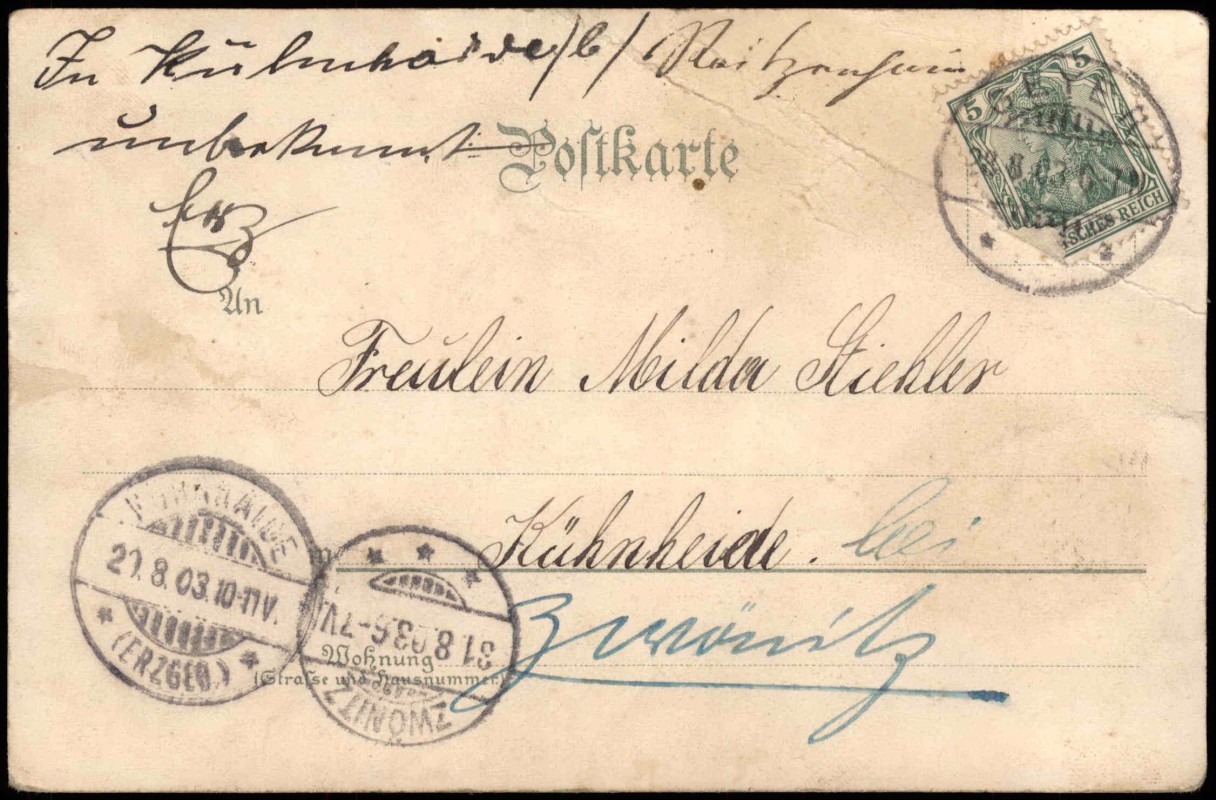 In Kühnhaide /b/ Reitzenhain
unbekannt
Postkarte
5
5
28.8.03
DEUTSCHES REICH
An
Fräulein Milda Stiehler
Kühnheide. bei
Zwönitz
KÜHNHAIDE
29.8.03.10-11V.
(ERZGEB.)
31.8.03.6-7V.
ZWÖNITZ
Wohnung
(Straße und Hausnummer)